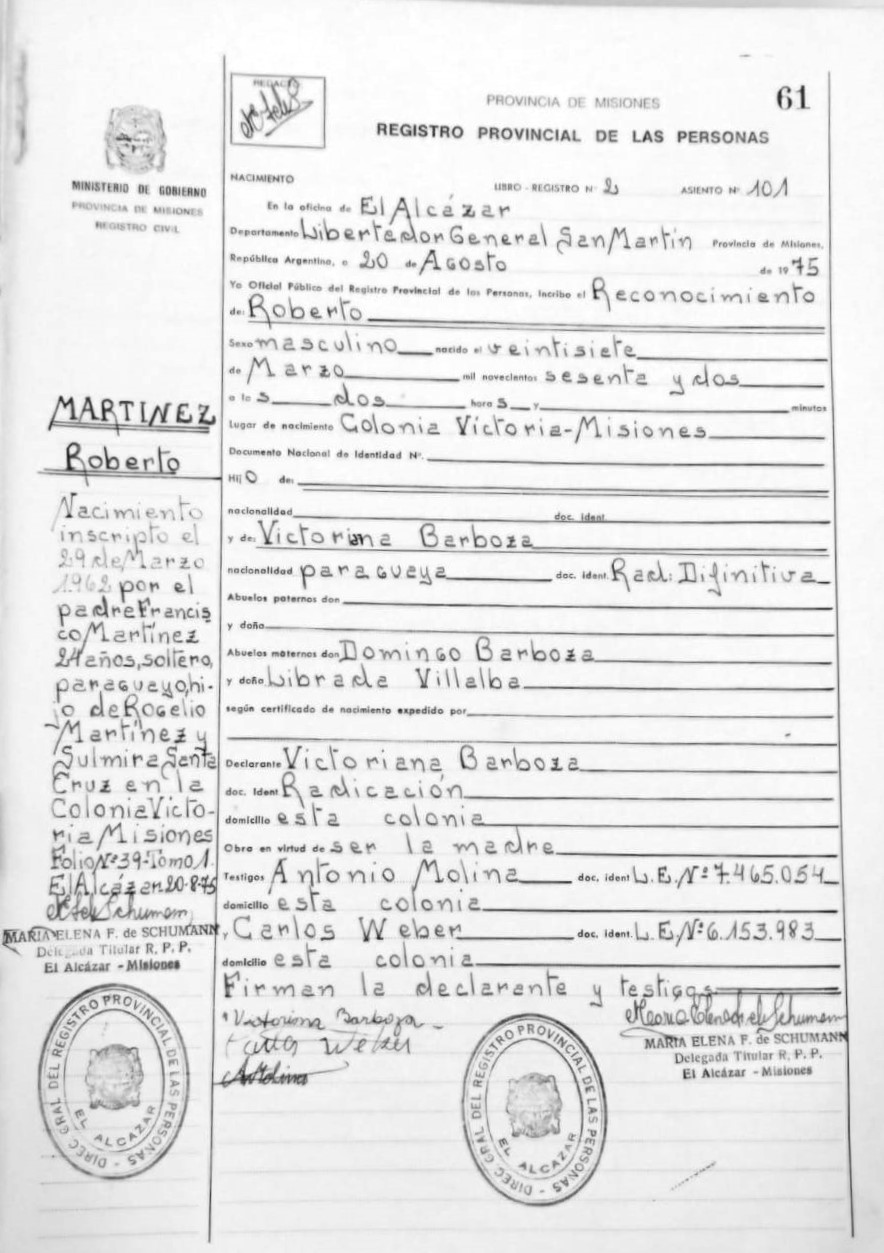 61
PROVINCIA DE MISIONES
REGISTRO PROVINCIAL DE LAS PERSONAS
MINISTERIO DE GOBIERNO
PROVINCIA DE MISIONES
REGISTRO CIVIL
NACIMIENTO
LIBRO - REGISTRO Nº 2 ASIENTO Nº 101
En la oficina de El Alcázar
Departamento Libertador General San Martín Provincia de Misiones,
República Argentina, a 20 de Agosto de 1975
Yo Oficial Público del Registro Provincial de las Personas, incribo el Reconocimiento
de: Roberto
Sexo masculino nacido el veintisiete
de Marzo mil novecientos sesenta y dos
a las dos horas y minutos
Lugar de nacimiento Colonia Victoria-Misiones
Documento Nacional de Identidad Nº.
Hijo de:
nacionalidad doc. ident.
y de: Victoriana Barboza
nacionalidad paraguaya doc. ident. Rad: Difinitiva
Abuelos paternos don
y doña
Abuelos maternos don Domingo Barboza
y doña Librada Villalba
según certificado de nacimiento expedido por
Declarante Victoriana Barboza
doc. ident Radicación
domicilio esta colonia
Obra en virtud de ser la madre
Testigos Antonio Molina doc. ident L.E.Nº 7.465.054
domicilio esta colonia
y Carlos Weber doc. ident. L.E.Nº 6.153.983
domicilio esta colonia
Firman la declarante y testigos
Victoriana Barboza
Carlos Weber
A Molina
MARIA ELENA F. de SCHUMANN
Delegada Titular R. P. P.
El Alcázar - Misiones
DIREC. GRAL DEL REGISTRO PROVINCIAL DE LAS PERSONAS
EL ALCAZAR
MARTINEZ
Roberto
Nacimiento
inscripto el
29 de Marzo
1962 por el
padre Francis
co Martínez
24 años, soltero,
paraguayo, hi-
jo de Rogelio
Martínez y
Sulmira Santa
Cruz en la
Colonia Victo-
ria Misiones
Folio Nº 39-Tomo 1.
El Alcázar 20-8-75
MARIA ELENA F. de SCHUMANN
Delegada Titular R. P. P.
El Alcázar - Misiones
DIREC. GRAL DEL REGISTRO PROVINCIAL DE LAS PERSONAS
EL ALCAZAR